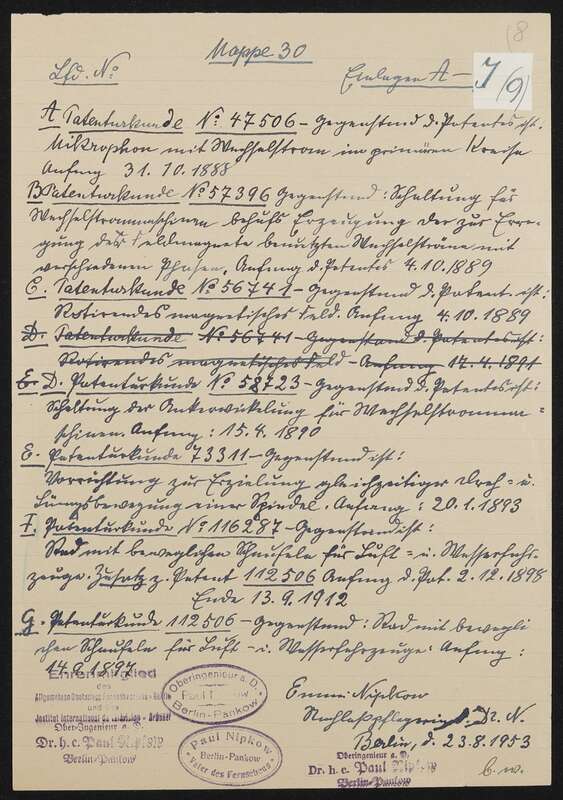 (8
Mappe 30
Lfd. No
Einlagen A – J
(9)
A Patenturkunde No 47506 – Gegenstand d. Patentes ist:
Mikrophon mit Wechselstrom im primären Kreise
Anfang 31.10.1888
B Patenturkunde No 57396 Gegenstand: Schaltung für
Wechselstrommaschinen behufs Erzeugung der zur Erre-
gung des Feldmagnete benutzten Wechselströme mit
verschiedenen Phasen. Anfang d. Patentes 4.10.1889
C. Patenturkunde No 56741 – Gegenstand d. Patent ist:
Rotirendes magnetisches Feld. Anfang 4.10.1889
D. Patenturkunde – No 56741 – Gegenstand d. Patentes ist:
Rotirendes magnetisches Feld – Anfang 17.4.1891
E. D. Patenturkunde No 58723 – Gegenstand d. Patentes ist:
Schaltung der Ankerwickelung für Wechselstromma=
schinen. Anfang: 15.4.1890
E. Patenturkunde 73311 – Gegenstand ist:
Vorrichtung zur Erzielung gleichzeitiger Dreh= u.
Längsbewegung einer Spindel. Anfang: 20.1.1893
F. Patenturkunde No 116287 – Gegenstand ist:
Rad mit beweglichen Schaufeln für Luft= u. Wasserfahr-
zeuge. Zusatz z. Patent 112506 Anfang d. Pat. 2.12.1898
Ende 13.9.1912
G. Patenturkunde 112506 – Gegenstand: Rad mit bewegli
chen Schaufeln für Luft – u. Wasserfahrzeuge. Anfang:
14.9.1897
Ehrenmitglied
des
und des
Institut International de Télévision - Brüssel
Ober-Ingenieur a. D.
Dr. h. c. Paul Nipkow
Berlin-Pankow
Oberingenieur a. D.
Paul Nipkow
Berlin-Pankow
Paul Nipkow
Berlin-Pankow
Vater des Fernsehens
Emmi Nipkow
Nachlaßpflegerin d. Dr. N.
Berlin, d. 23.8.1953
Oberingenieur a. D.
Dr. h. c. Paul Nipkow
Berlin-Pankow
b. w.